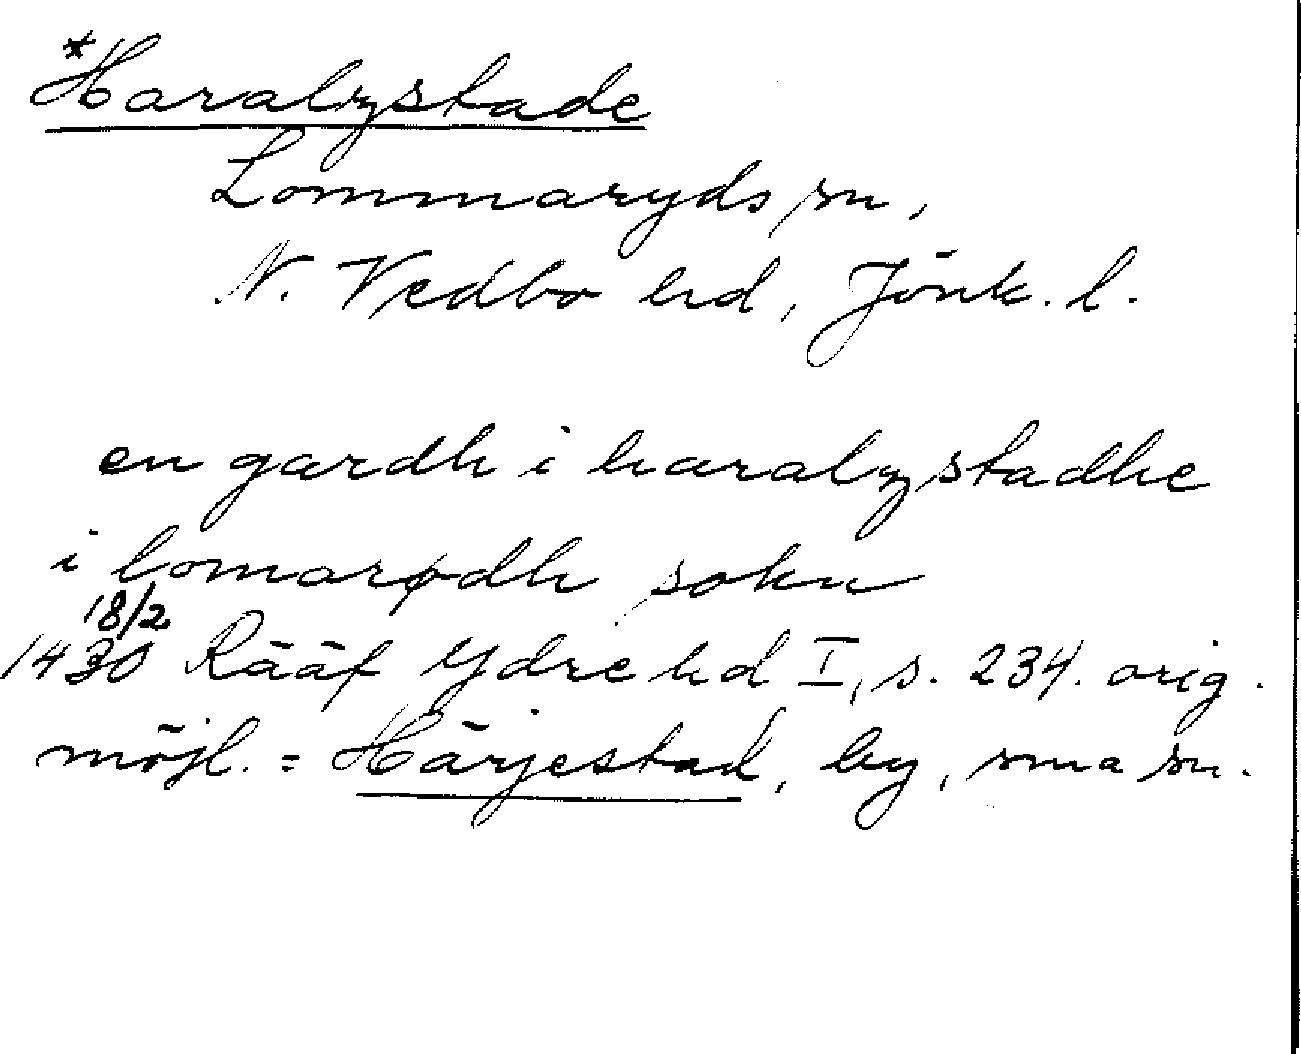 *Haralzstade
Lommaryds sn,
N. Vedbo hd, Jönk. l.
en gardh i haralzstadhe
i lomarødh sokn
18/2
1430 Rääf Ydre hd I, s. 234. orig.
möjl. = Härjestad, by, sma sn.